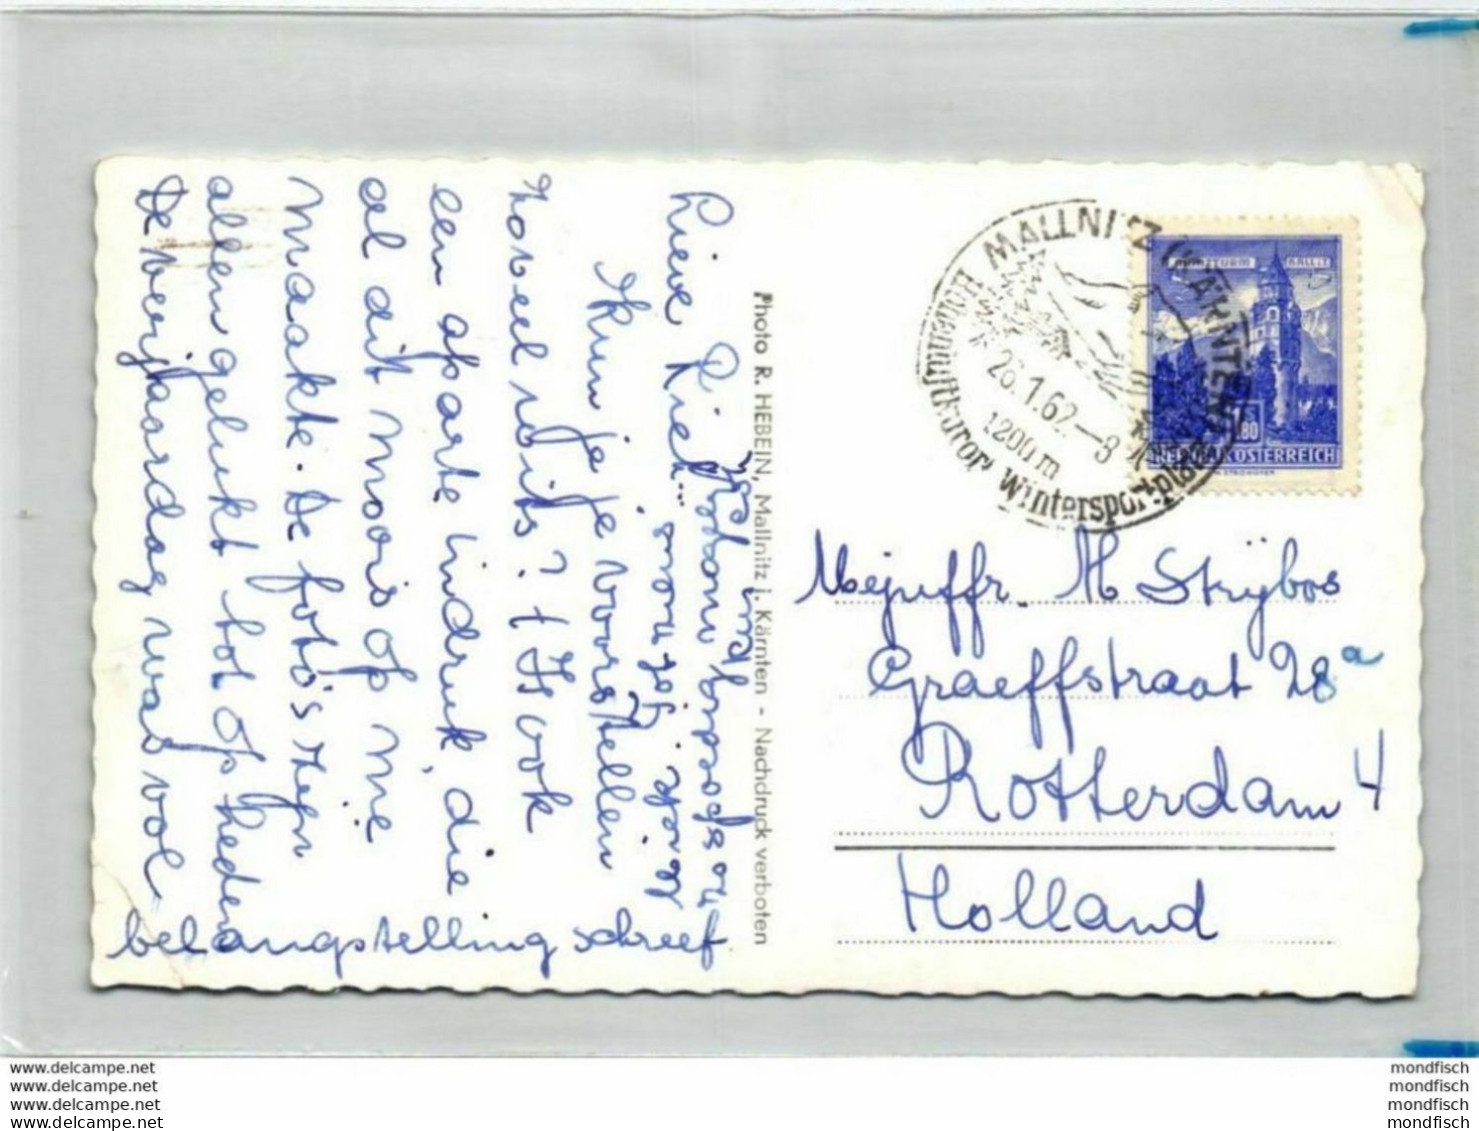 Lieve Riet...
Kun je je voorstellen
hoveel wits? t Is ook
een aparte indruk, die
al dit moois op me
maakte. De foto's zijn
allen gelukt tot op heden
De verjaardag was vol
belangstelling schreef
Photo R. HEBEIN, Mallnitz i. Kärnten - Nachdruck verboten
MALLNITZ (KÄRNTEN)
26.1.62-8
1200m
Wintersportplatz
MÜNZTURM HALL I. T.
1.80
REPUBLIK ÖSTERREICH
Mejuffr. M Strijbos
Graeffstraat 28a
Rotterdam 4
Holland
www.delcampe.net
www.delcampe.net
www.delcampe.net
www.delcampe.net
mondfisch
mondfisch
mondfisch
mondfisch